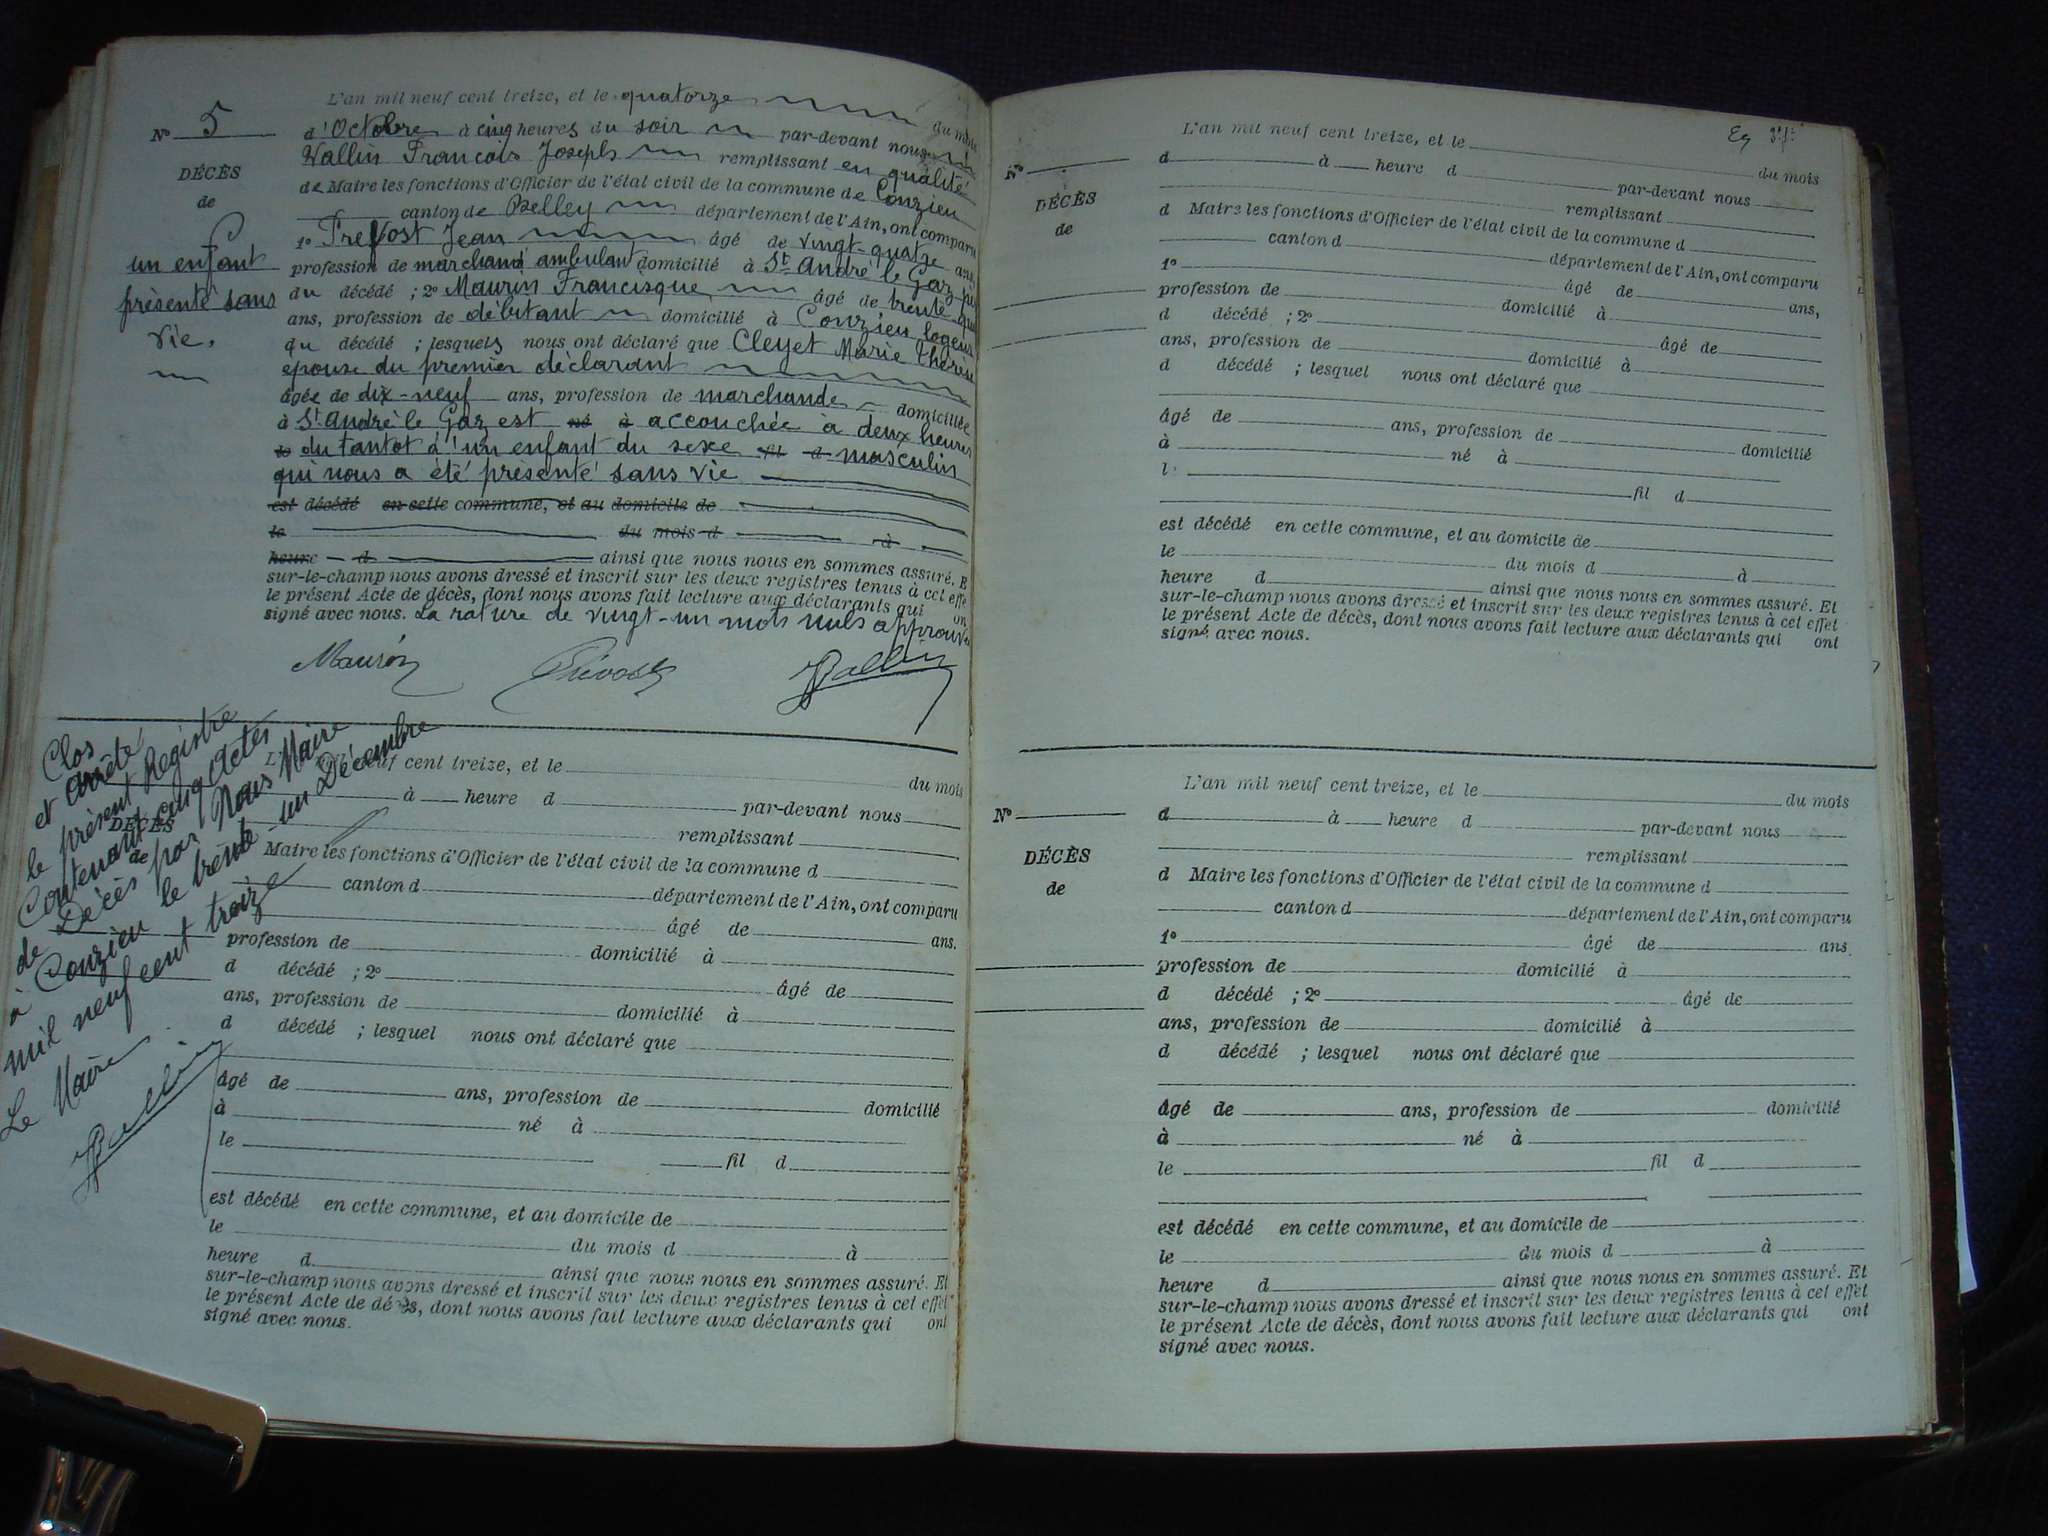 L'an mil neuf cent treize, et le quatorze du mois
N° 5
d'Octobre à cinq heures du soir par-devant nous
Wallin Francois Joseph remplissant en qualité
DÉCÈS
de Maire les fonctions d'Officier de l'état civil de la commune de Conzieu
de
canton de Belley département de l'Ain, ont comparu
1° Prevost Jean âgé de vingt-quatre ans,
un enfant
profession de marchand ambulant domicilié à St André le Gaz
présenté sans
du décédé ; 2° Maurin Francisque âgé de trente
vie.
ans, profession de débitant domicilié à Conzieu logeur
du décédé ; lesquels nous ont déclaré que Cleyet Marie Thérèse
epouse du premier déclarant
âgée de dix-neuf ans, profession de marchande domiciliée
à St André le Gaz est né à accouchée à deux heures
le du tantot d'un enfant du sexe fil d masculin
qui nous a été présenté sans vie
est décédé en cette commune, et au domicile de
le du mois d à
heure d ainsi que nous nous en sommes assuré. E
sur-le-champ nous avons dressé et inscrit sur les deux registres tenus à cet effe
le présent Acte de décès, dont nous avons fait lecture aux déclarants qui on
signé avec nous. La rature de vingt-un mots nuls approuvée
Maurin Prévost Wallin
Clos
et arrêté
le présent Registre
Contenant cinq actes
de Décès par Nous Maire
à Conzieu le trente-un Décembre
mil neuf cent treize
Le Maire
Wallin
L' neuf cent treize, et le du mois
à heure d par-devant nous
DÉCÈS
remplissant
de
Maire les fonctions d'Officier de l'état civil de la commune d
canton d département de l'Ain, ont comparu
âgé de ans.
profession de domicilié à
d décédé ; 2° âgé de
ans, profession de domicilié à
d décédé ; lesquel nous ont déclaré que
âgé de ans, profession de domicilié
à né à
le fil d
est décédé en cette commune, et au domicile de
le du mois d à
heure d ainsi que nous nous en sommes assuré. Et
sur-le-champ nous avons dressé et inscrit sur les deux registres tenus à cet effet
le présent Acte de décès, dont nous avons fait lecture aux déclarants qui ont
signé avec nous.
L'an mil neuf cent treize, et le du mois
N°
d à heure d par-devant nous
DÉCÈS
remplissant
de
d Maire les fonctions d'Officier de l'état civil de la commune d
canton d département de l'Ain, ont comparu
1° âgé de ans,
profession de domicilié à
d décédé ; 2° âgé de
ans, profession de domicilié à
d décédé ; lesquel nous ont déclaré que
âgé de ans, profession de domicilié
à né à
l fil d
est décédé en cette commune, et au domicile de
le du mois d à
heure d ainsi que nous nous en sommes assuré. Et
sur-le-champ nous avons dressé et inscrit sur les deux registres tenus à cet effet
le présent Acte de décès, dont nous avons fait lecture aux déclarants qui ont
signé avec nous.
L'an mil neuf cent treize, et le du mois
N°
d à heure d par-devant nous
DÉCÈS
remplissant
de
d Maire les fonctions d'Officier de l'état civil de la commune d
canton d département de l'Ain, ont comparu
1° âgé de ans.
profession de domicilié à
d décédé ; 2° âgé de
ans, profession de domicilié à
d décédé ; lesquel nous ont déclaré que
âgé de ans, profession de domicilié
à né à
le fil d
est décédé en cette commune, et au domicile de
le du mois d à
heure d ainsi que nous nous en sommes assuré. Et
sur-le-champ nous avons dressé et inscrit sur les deux registres tenus à cet effet
le présent Acte de décès, dont nous avons fait lecture aux déclarants qui ont
signé avec nous.